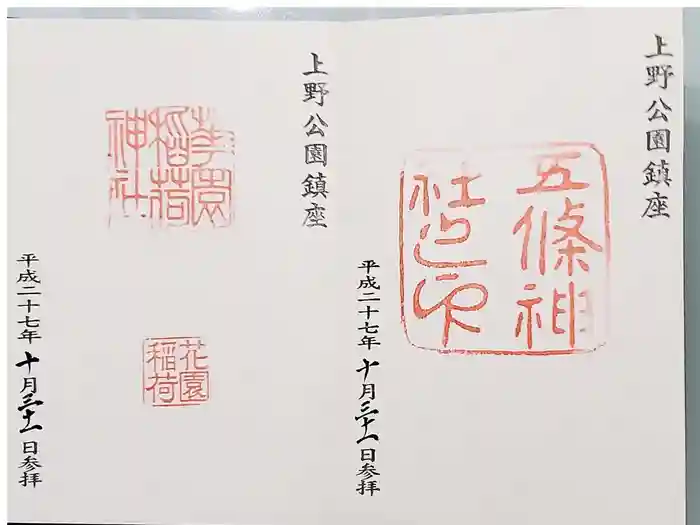 上野公園鎮座
五條神
社之印
平成二十七年十月三十一日参拝
上野公園鎮座
稲荷
神社
花園
稲荷
平成二十七年十月三十一日参拝